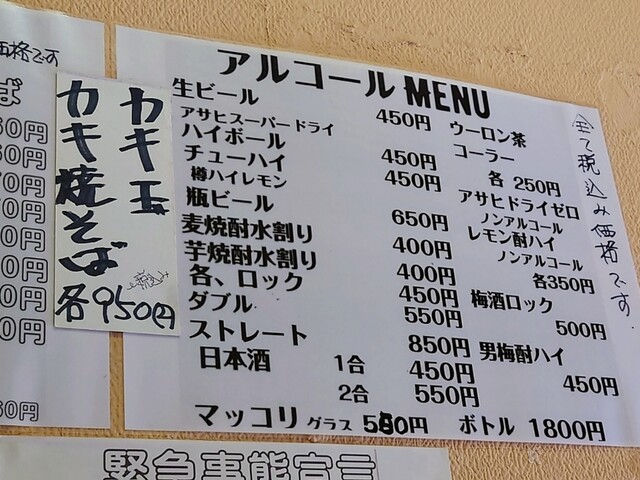 価格です
ば
60円
カキ玉
カキ焼そば
各950円
アルコールMENU
生ビール
アサヒスーパードライ 450円
ハイボール
チューハイ 450円
樽ハイレモン 450円
瓶ビール 650円
麦焼酎水割り 400円
芋焼酎水割り 400円
各、ロック 450円
ダブル 550円
ストレート 850円
日本酒 1合 450円
2合 550円
マッコリ グラス 550円 ボトル 1800円
ウーロン茶
コーラー
各 250円
アサヒドライゼロ
ノンアルコール
レモン酎ハイ
ノンアルコール
各350円
梅酒ロック
500円
男梅酎ハイ
450円
全て税込み価格です。
緊急事態宣言